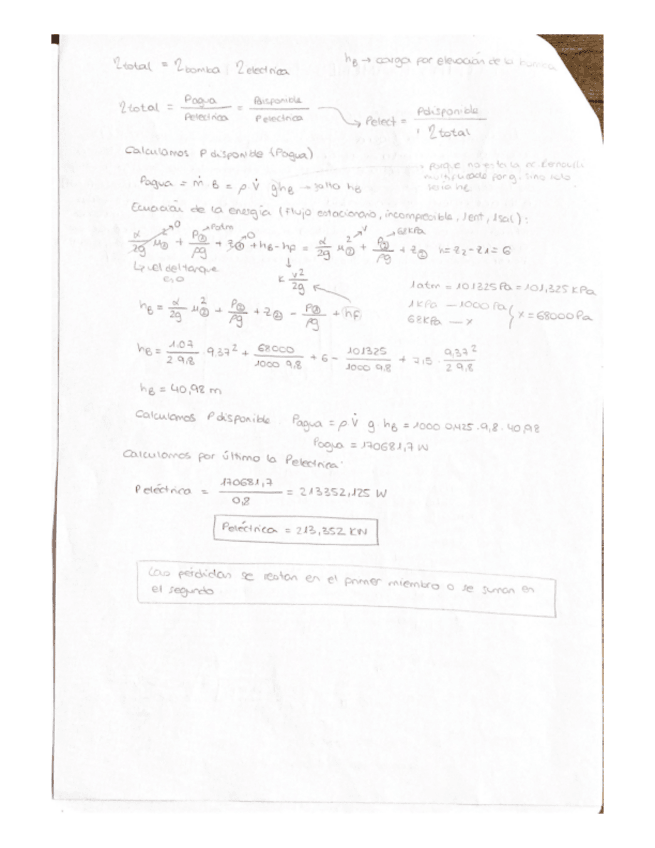 η total = η bomba · η electrica
h_B → carga por elevación de la bomba
η total = Pagua / Pelectrica = Pdisponible / Pelectrica → Pelect = Pdisponible / η total
Calculamos P disponible (Pagua)
Pagua = ṁ · B = ρ V̇ g h_B → salta h_B
Ecuación de la energía (Flujo estacionario, incompresible, 1ent, 1sal):
α/2g u₁² + P₁/ρg + z₁ + h_B - h_F = α/2g u₂² + P₂/ρg + z₂ h = z₂ - z₁ = 6
Patm 0 0 68KPa
K V²/2g
1atm = 101325 Pa = 101,325 KPa
1KPa — 1000 Pa
68KPa — x } x = 68000 Pa
h_B = α/2g u₂² + P₂/ρg + z₂ - P₁/ρg + h_F
h_B = 1.07/2·9,8 · 9.37² + 68000/1000·9,8 + 6 - 101325/1000·9,8 + 7,5 · 9,37²/2·9,8
h_B = 40,98 m
Calculamos P disponible Pagua = ρ V̇ g h_B = 1000·0,425·9,8·40,98
Pagua = 170681,7 W
Calculamos por último la Pelectrica:
Peléctrica = 170681,7 / 0,8 = 213352,125 W
Peléctrica = 213,352 KW
Las pérdidas se restan en el primer miembro o se suman en
el segundo